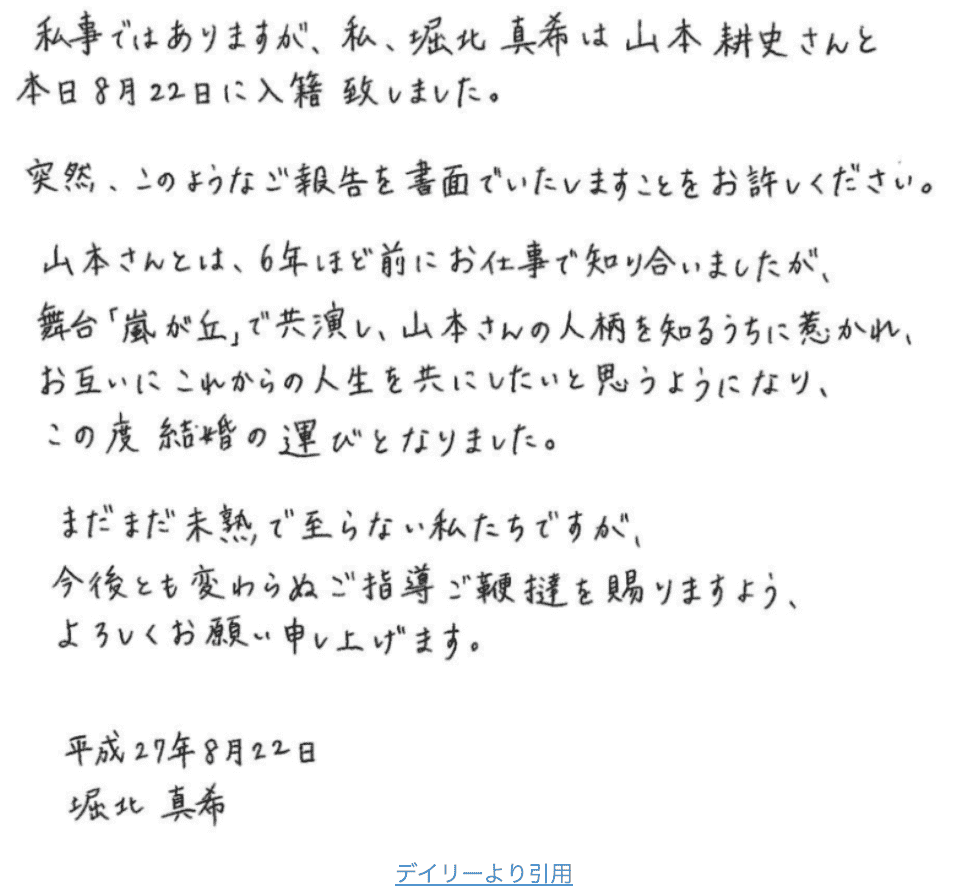 私事ではありますが、私、堀北真希は山本耕史さんと
本日8月22日に入籍致しました。
突然、このようなご報告を書面でいたしますことをお許しください。
山本さんとは、6年ほど前にお仕事で知り合いましたが、
舞台「嵐が丘」で共演し、山本さんの人柄を知るうちに惹かれ、
お互いにこれからの人生を共にしたいと思うようになり、
この度結婚の運びとなりました。
まだまだ未熟で至らない私たちですが、
今後とも変わらぬご指導ご鞭撻を賜りますよう、
よろしくお願い申し上げます。
平成27年8月22日
堀北真希
デイリーより引用